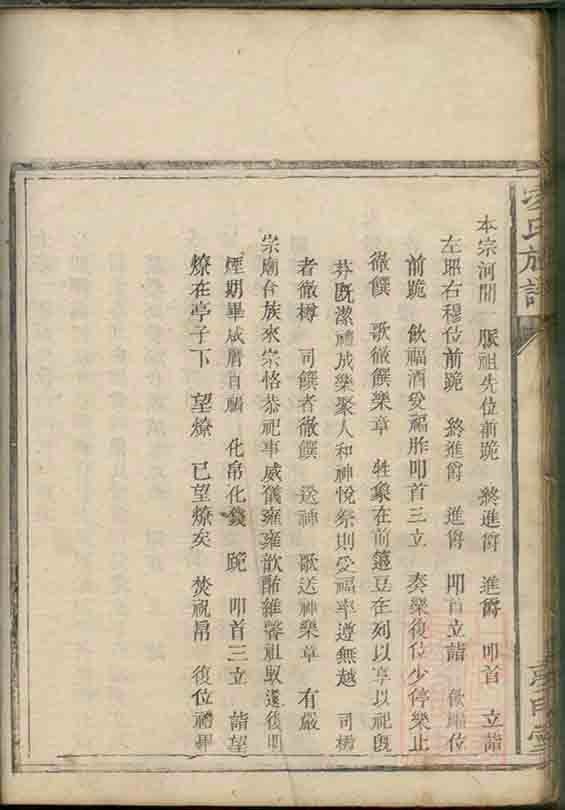 氏族譜
本宗河間一脈祖先位前跪 終進爵 進爵 叩首 立 詣
左昭右穆位前跪 終進爵 進爵 叩首立詣 飲福位
前跪 飲福酒受福胙叩首三立 奏樂復位少停樂止
徹饌 歌徹饌樂章 牲象在前籩豆在列以享以祀旣
芬旣潔禮成樂聚人和神悅祭則受福率遵無越 司樽
者徹樽 司饌者徹饌 送神 歌送神樂章 有嚴
宗廟合族來宗恪恭祀事威儀雍雍歆酧維馨祖馭還後明
煙期畢咸膺自麟 化帛化錢 跪 叩首三立 詣望
燎在亭子下 望燎 已望燎矣 焚祝帛 復位禮畢